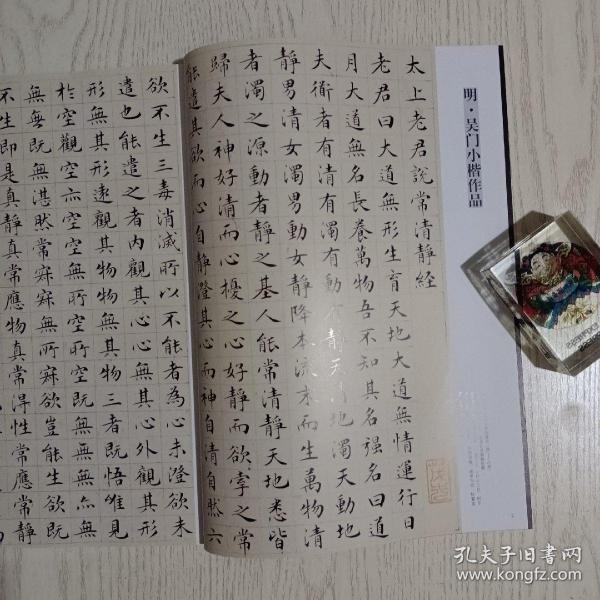 明·吴门小楷作品
太上老君說常清靜經
老君曰大道無形生育天地大道無情運行日
月大道無名長養萬物吾不知其名强名曰道
夫衜者有清有濁有動有靜天清地濁天動地
靜男清女濁男動女靜降本流末而生萬物清
者濁之源動者靜之基人能常清靜天地悉皆
歸夫人神好清而心擾之心好靜而欲牽之常
能遣其欲而心自靜澄其心而神自清自然六
欲不生三毒消滅所以不能者為心未澄欲未
遣也能遣之者內觀其心心無其心外觀其形
形無其形遠觀其物物無其物三者既悟唯見
於空觀空亦空空無所空所空既無無無亦無
無無既無湛然常寂寂無所寂欲豈能生欲既
不生即是真靜真常應物真常得性常應常靜
孔夫子旧书网
www.kongfz.com